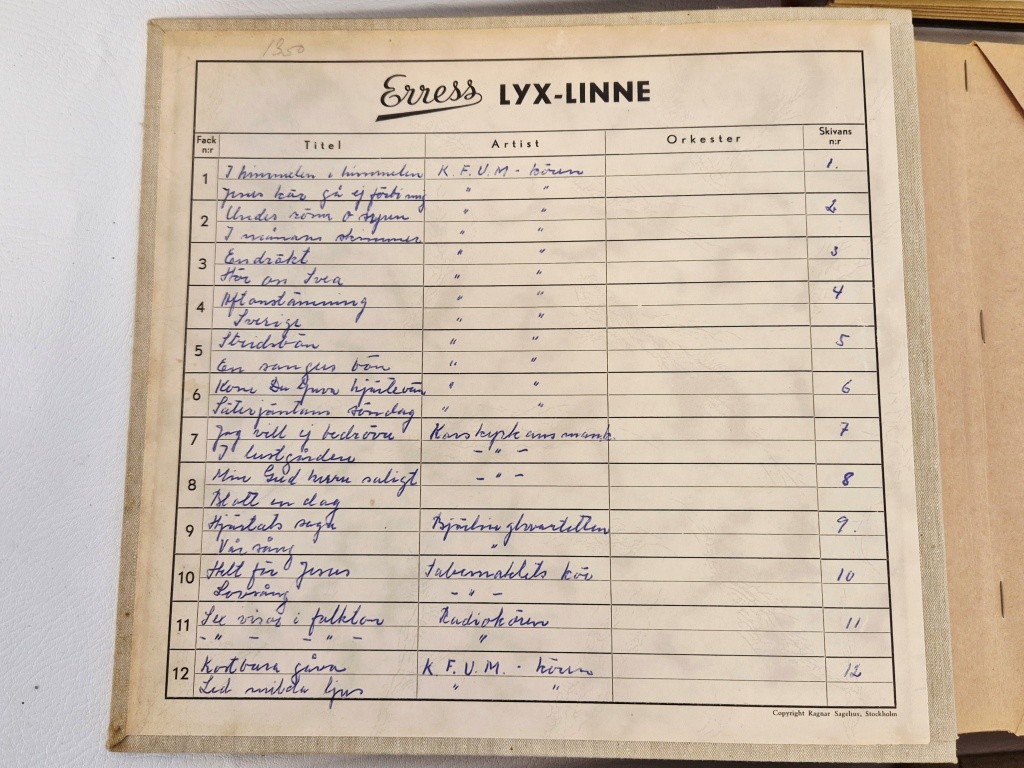 1950
Erress LYX-LINNE
Fack n:r Titel Artist Orkester Skivans n:r
1 I himmelen i himmelen K. F. U. M. - kören 1.
Jesus kär gå ej förbi mig " "
2 Under rönn o syren " " 2
I månans skimmer " "
3 Endräkt " " 3
Hör oss Svea " "
4 Aftonstämning " " 4
Sverige " "
5 Stridsbön " " 5
En sångers bön " "
6 Kom Du ljuva hjärtevän " " 6
Säterjäntans söndag " "
7 Jag vill ej bedröva 7
I lustgården - " -
8 Min Gud huru saligt - " - 8
Blott en dag
9 Hjärtats saga 9.
Vår sång "
10 Helt för Jesus Tabernaklets kör 10
Lovsång - " -
11 visor i folkton Radiokören 11
- " - - " - "
12 Kostbara gåva K. F. U. M. - kören 12
Led milda ljus " "
Copyright Ragnar Sagelius, Stockholm